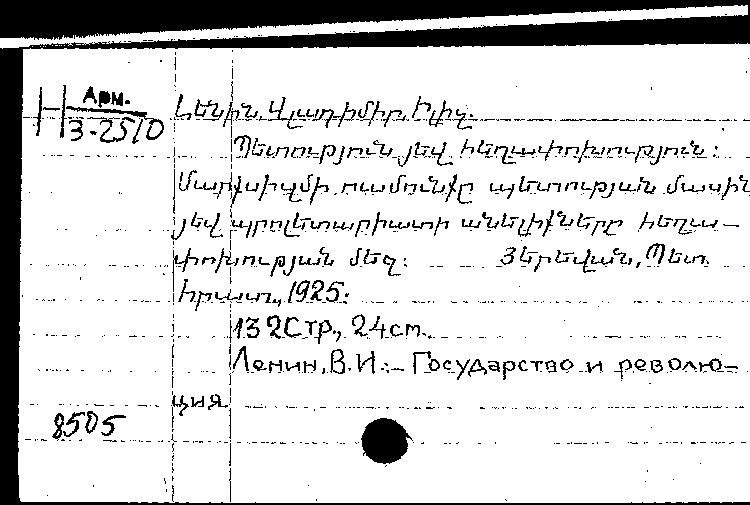 Арм.
3-2510
Լենին, Վլադիմիր Իլիչ.
Պետություն յեվ հեղափոխություն:
Մարքսիզմի ուսմունքը պետության մասին
յեվ պրոլետարիատի անելիքները հեղա-
փոխության մեջ: Յերեվան, Պետ.
հրատ., 1925:
132 Стр., 24 см.
Ленин, В. И. – Государство и револю-
ция.
8505